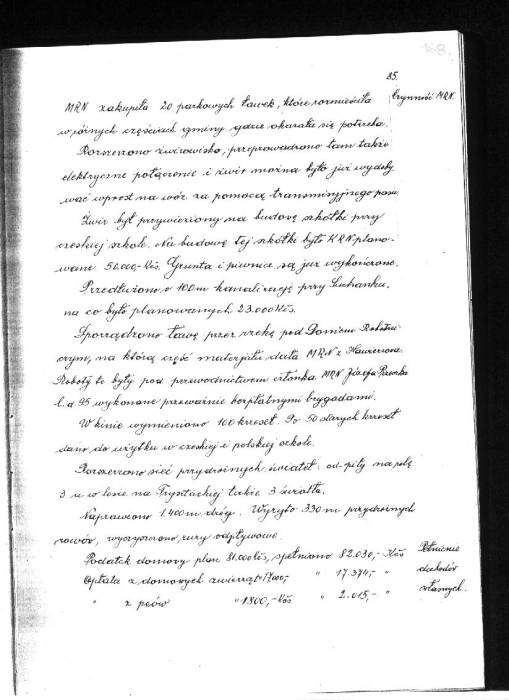 168.
85.
MRN zakupiła 20 parkowych ławek, które rozmieściła
Czynność MRN.
w różnych częściach gminy gdzie okazała się potrzeba.
Rozszerzono żwirowisko, przeprowadzono tam także
elektryczne połączenie i żwir można było już wydoby-
wać wprost na wóz za pomocą transmisyjnego pasu.
Żwir był przywieziony na budowę szkółki przy
czeskiej szkole. Na budowę tej szkółki było KRN plano-
wane 50.000,- Kčs. Grunta i piwnice są już wykończone.
Przedłużono o 100 m kanalizację przy
na co było planowanych 23.000 Kčs.
Sporządzono ławę przez rzekę pod Domem Robotni-
czym, na którą część materjału dała MRN z Hawierzowa.
Roboty te były pod przewodnictwem członka MRN Józefa
l. d. 95 wykonane przeważnie bezpłatnymi brygadami.
W kinie wymieniono 100 krzeseł. Po 50 starych krzeseł
dano do użytku w czeskiej i polskiej szkole.
Rozszerzono sieć przydrożnych świateł: od piły na polę
3 a w lesie na Trystackiej także 3 światła.
Naprawiono 1.400 m dróg. Wyryto 330 m przydrożnych
rowów, wyczyszczono rury odpływowe.
Podatek domovy plan 81.000 Kčs, spełniono 82.030,- Kčs
Pełnienie
Opłata z domowych zwierząt " 17000,- " 17.374,- "
dochodów
" z psów " 1800,- Kčs " 2.015,- "
własnych.